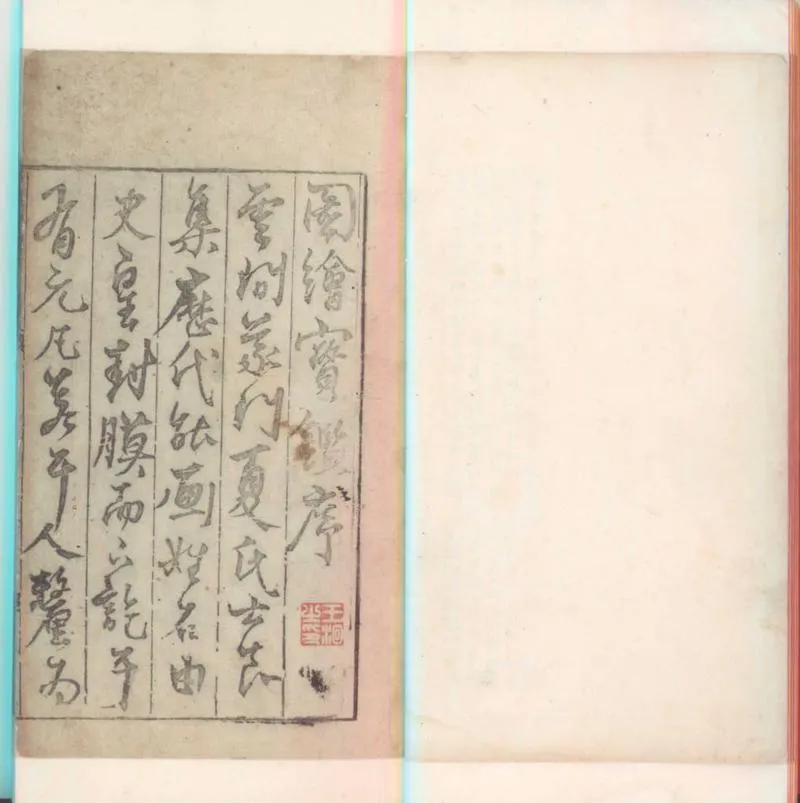 圖繪寶鑑序
雲間義門夏氏士良
集歷代能畫姓名由
史皇封膜而下訖于
有元凡若干人釐為